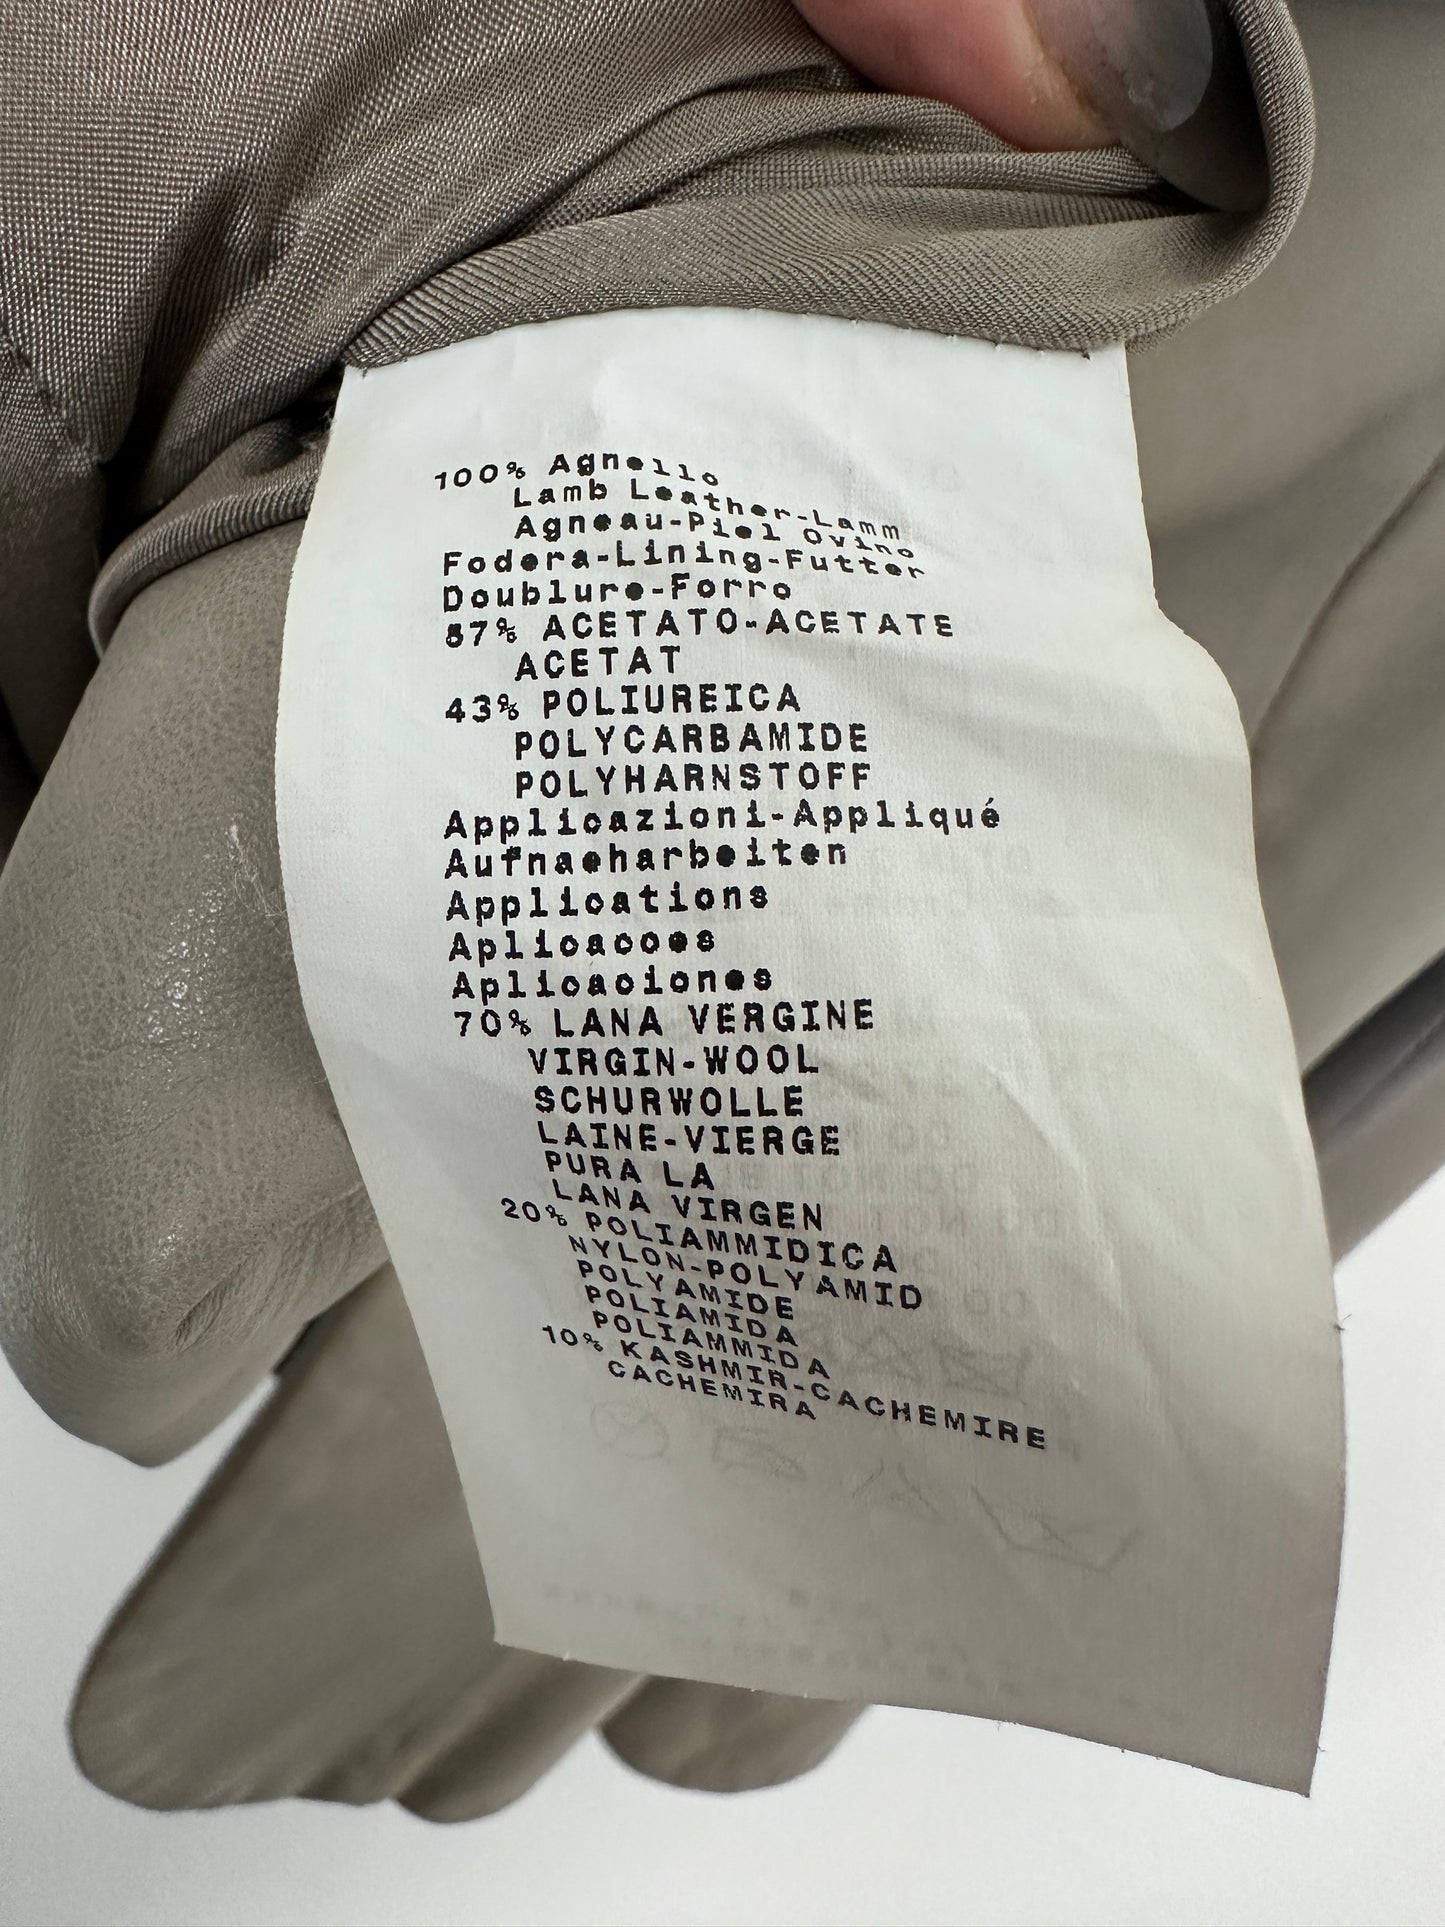 100% Agnello
Lamb Leather-Lamm
Agneau-Piel Ovino
Fodera-Lining-Futter
Doublure-Forro
57% ACETATO-ACETATE
ACETAT
43% POLIUREICA
POLYCARBAMIDE
POLYHARNSTOFF
Applicazioni-Appliqué
Aufnaeharbeiten
Applications
Aplicacoes
Aplicaciones
70% LANA VERGINE
VIRGIN-WOOL
SCHURWOLLE
LAINE-VIERGE
PURA LA
LANA VIRGEN
20% POLIAMMIDICA
NYLON-POLYAMID
POLYAMIDE
POLIAMIDA
POLIAMMIDA
10% KASHMIR-CACHEMIRE
CACHEMIRA